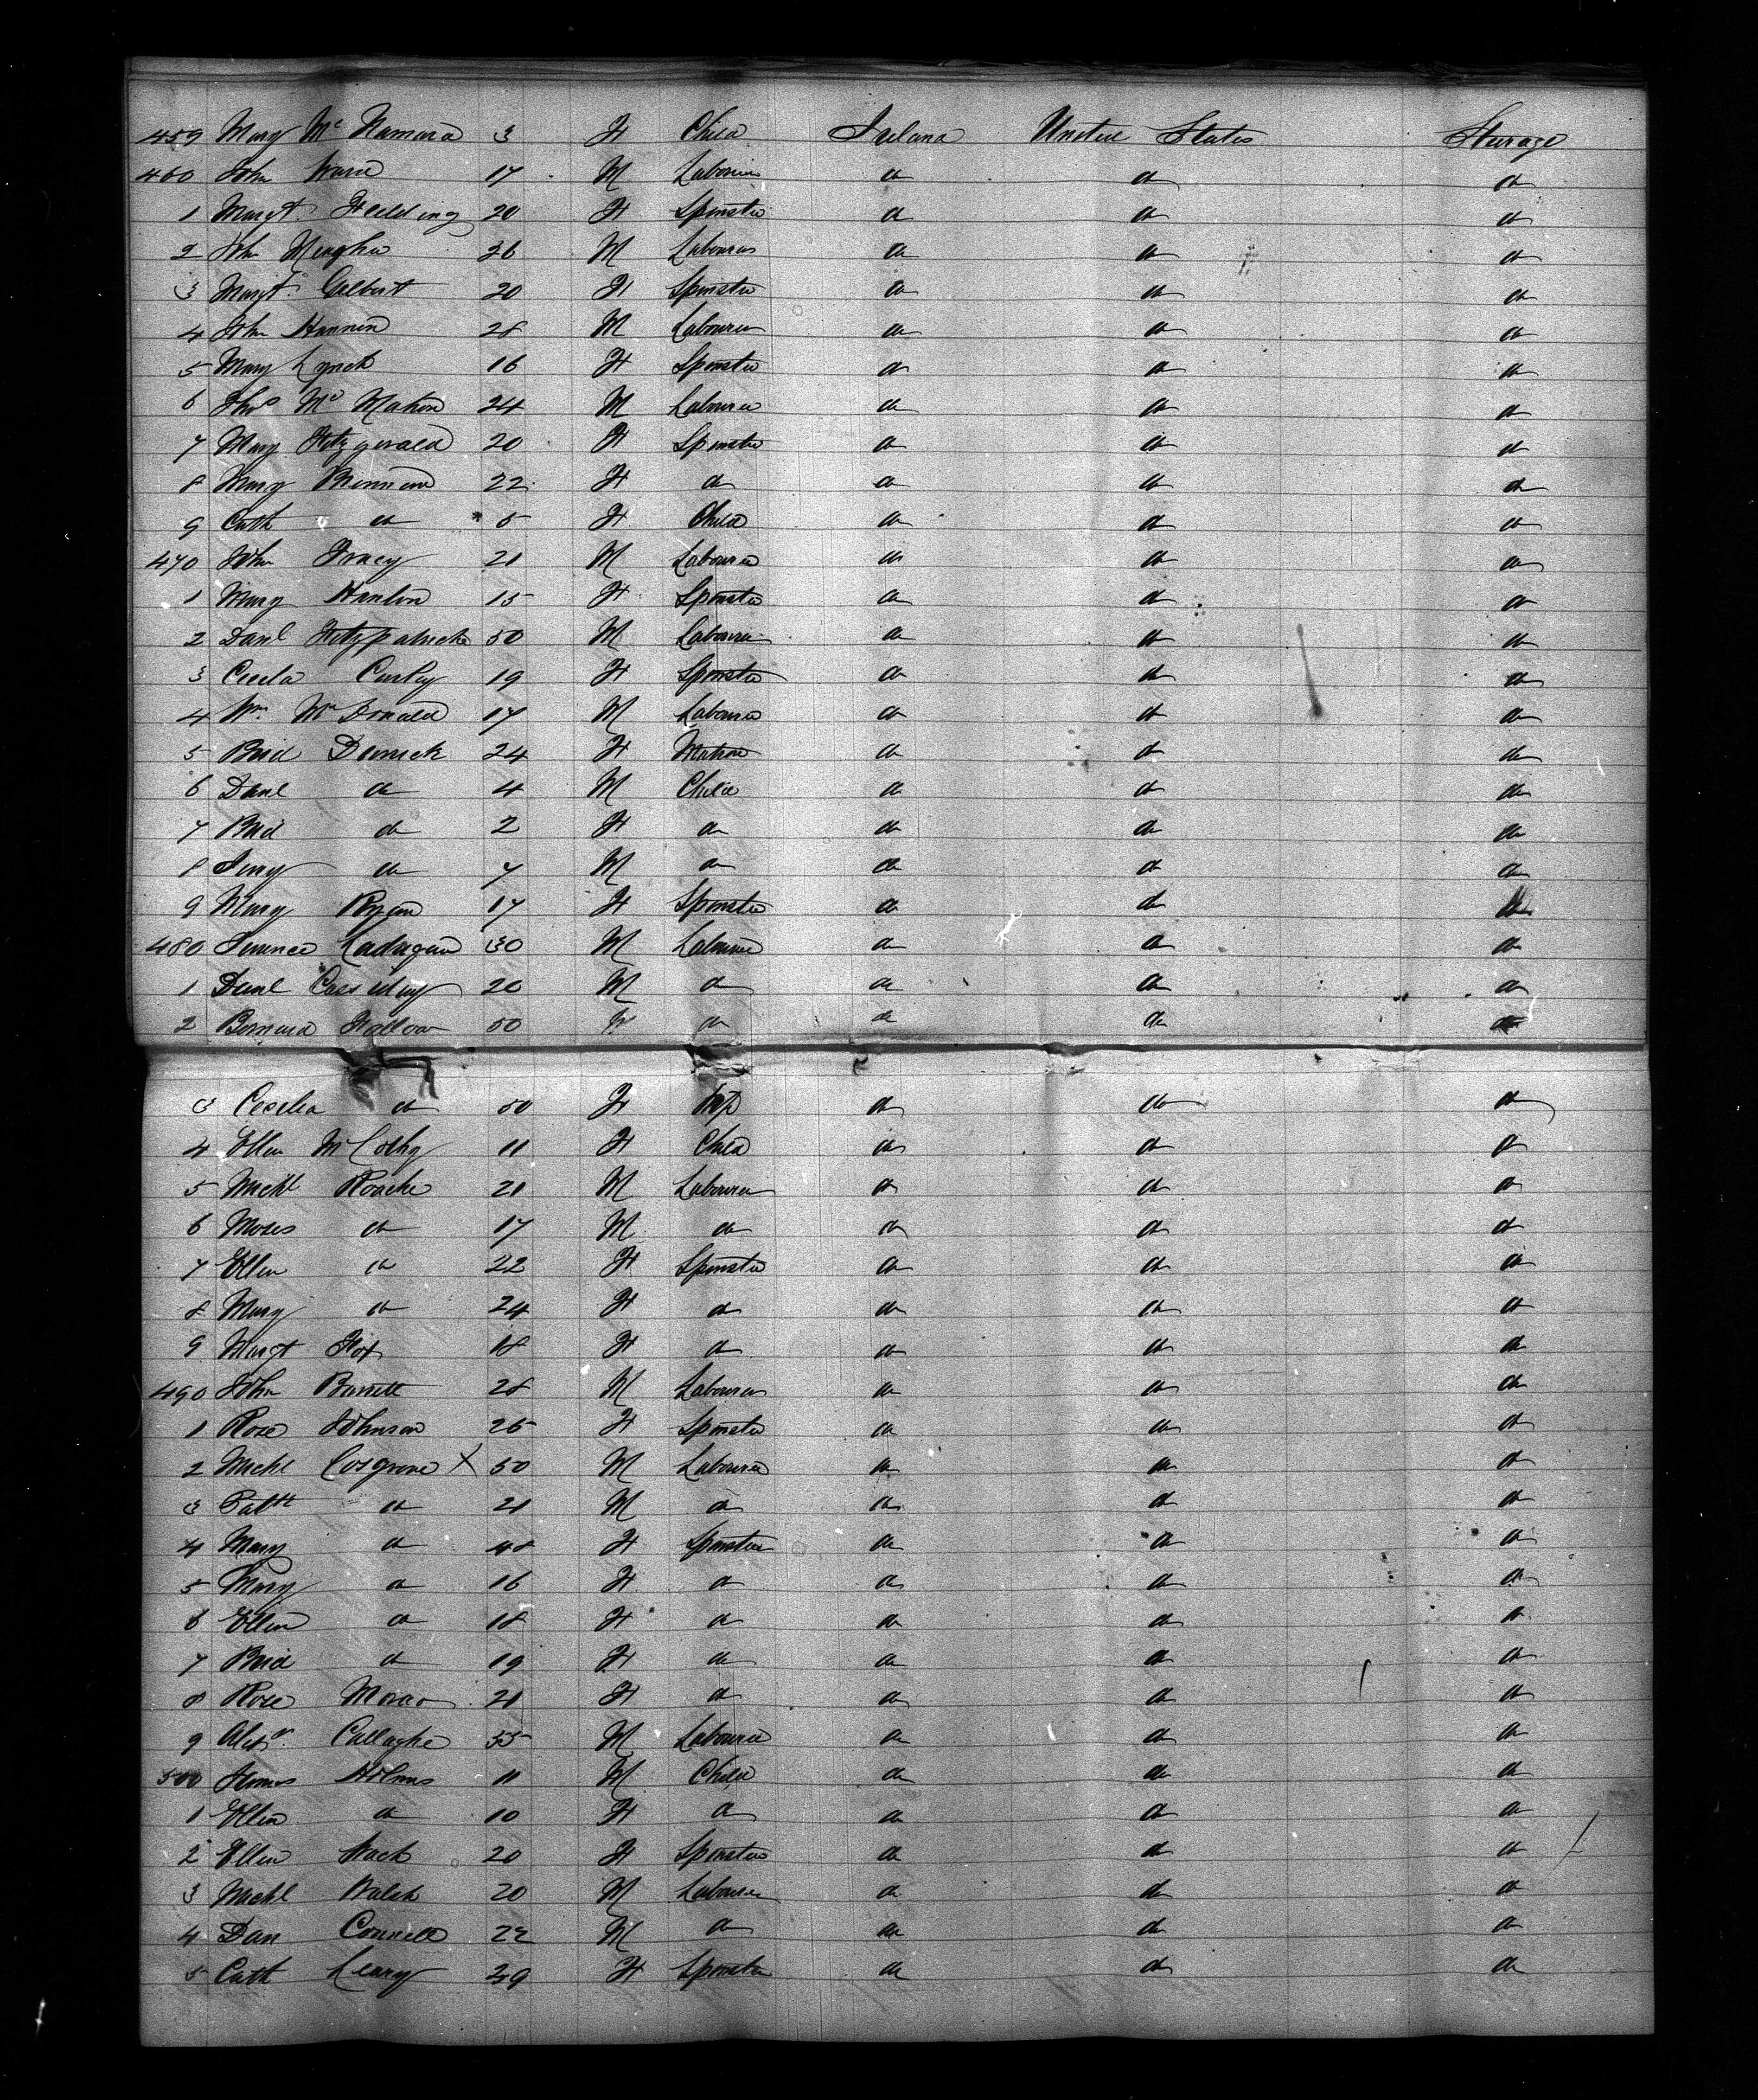 459 Mary McNamara 3 F Child Ireland United States Steerage
460 John Ward 17 M Labourer do do do
1 Margt. Fielding 20 F Spinster do do do
2 John Meagher 26 M Labourer do do do
3 Margt. Gilbert 20 F Spinster do do do
4 John Hannin 28 M Labourer do do do
5 Mary Lynch 16 F Spinster do do do
6 Thos McMahon 24 M Labourer do do do
7 Mary Fitzgerald 20 F Spinster do do do
8 Mary Brennan 22 F do do do do
9 Cath do 5 F Child do do do
470 John Tracey 21 M Labourer do do do
1 Mary Hanlon 15 F Spinster do do do
2 Danl Fitzpatrick 50 M Labourer do do do
3 Cecela Curley 19 F Spinster do do do
4 Wm. McDonald 17 M Labourer do do do
5 Brid 24 F Matron do do do
6 Danl do 4 M Child do do do
7 Brid do 2 F do do do do
8 do 7 M do do do do
9 Mary Ryan 17 F Spinster do do do
480 Terence 30 M Labourer do do do
1 Danl Cassidy 20 M do do do do
2 Bernard 50 do do do do
3 Cecelia do 50 F do do do
4 Ellen 11 F Child do do do
5 Michl Roache 21 M Labourer do do do
6 Moses do 17 M do do do do
7 Ellen do 22 F Spinster do do do
8 Mary do 24 F do do do do
9 Margt Fox 18 F do do do do
490 John Barrett 28 M Labourer do do do
1 Rose Johnson 25 F Spinster do do do
2 Michl Cosgrove X 50 M Labourer do do do
3 Patk do 21 M do do do do
4 Mary do 48 F Spinster do do do
5 Mary do 16 F do do do do
6 Ellen do 18 F do do do do
7 Brid do 19 F do do do do
8 Rose 21 F do do do do
9 Alexr. Callaghe 35 M Labourer do do do
500 James Holmes 11 M Child do do do
1 Ellen do 10 F do do do do
2 Ellen 20 F Spinster do do do
3 Michl Walsh 20 M Labourer do do do
4 Dan Connell 22 M do do do do
5 Cath Leary 29 F Spinster do do do